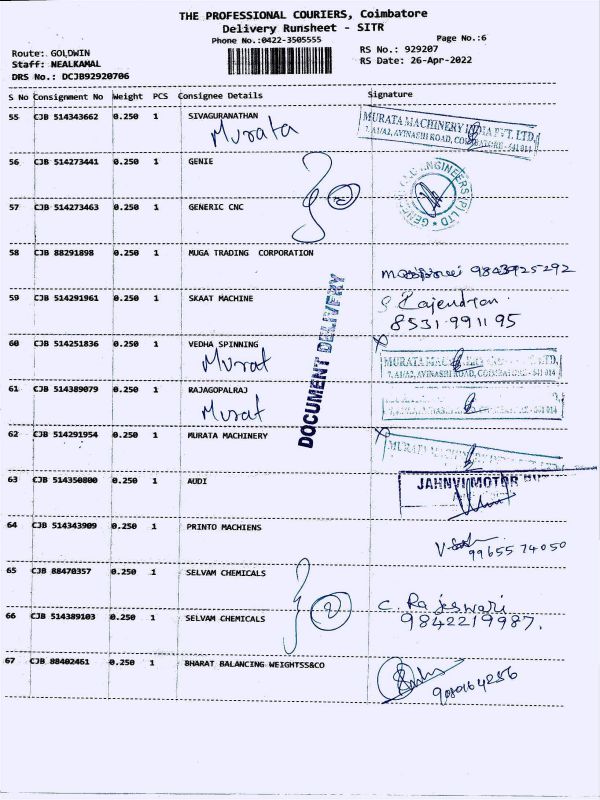 THE PROFESSIONAL COURIERS, Coimbatore
Delivery Runsheet - SITR
Phone No.:0422-3505555
Page No.:6
Route: GOLDWIN
RS No.: 929207
Staff: NEALKAMAL
RS Date: 26-Apr-2022
DRS No.: DCJB92920706
S No Consignment No Weight PCS Consignee Details Signature
55 CJB 514343662 0.250 1 SIVAGURANATHAN
Murata
MURATA MACHINERY INDIA PVT. LTD.
7, A1/A2, AVINASHI ROAD, COIMBATORE - 641 014
56 CJB 514273441 0.250 1 GENIE
57 CJB 514273463 0.250 1 GENERIC CNC
58 CJB 88291898 0.250 1 MUGA TRADING CORPORATION
9843925292
59 CJB 514291961 0.250 1 SKAAT MACHINE
S Rajendran
8531991195
DOCUMENT DELIVERY
60 CJB 514251836 0.250 1 VEDHA SPINNING
Murat
7, A1/A2, AVINASHI ROAD, COIMBATORE - 641 014
61 CJB 514389079 0.250 1 RAJAGOPALRAJ
Murat
62 CJB 514291954 0.250 1 MURATA MACHINERY
63 CJB 514350800 0.250 1 AUDI
JAHNVI MOTOR
64 CJB 514343909 0.250 1 PRINTO MACHIENS
99655 74050
65 CJB 88470357 0.250 1 SELVAM CHEMICALS
C. Rajeswari
66 CJB 514389103 0.250 1 SELVAM CHEMICALS
9842219987.
67 CJB 88402461 0.250 1 BHARAT BALANCING WEIGHTSS&CO